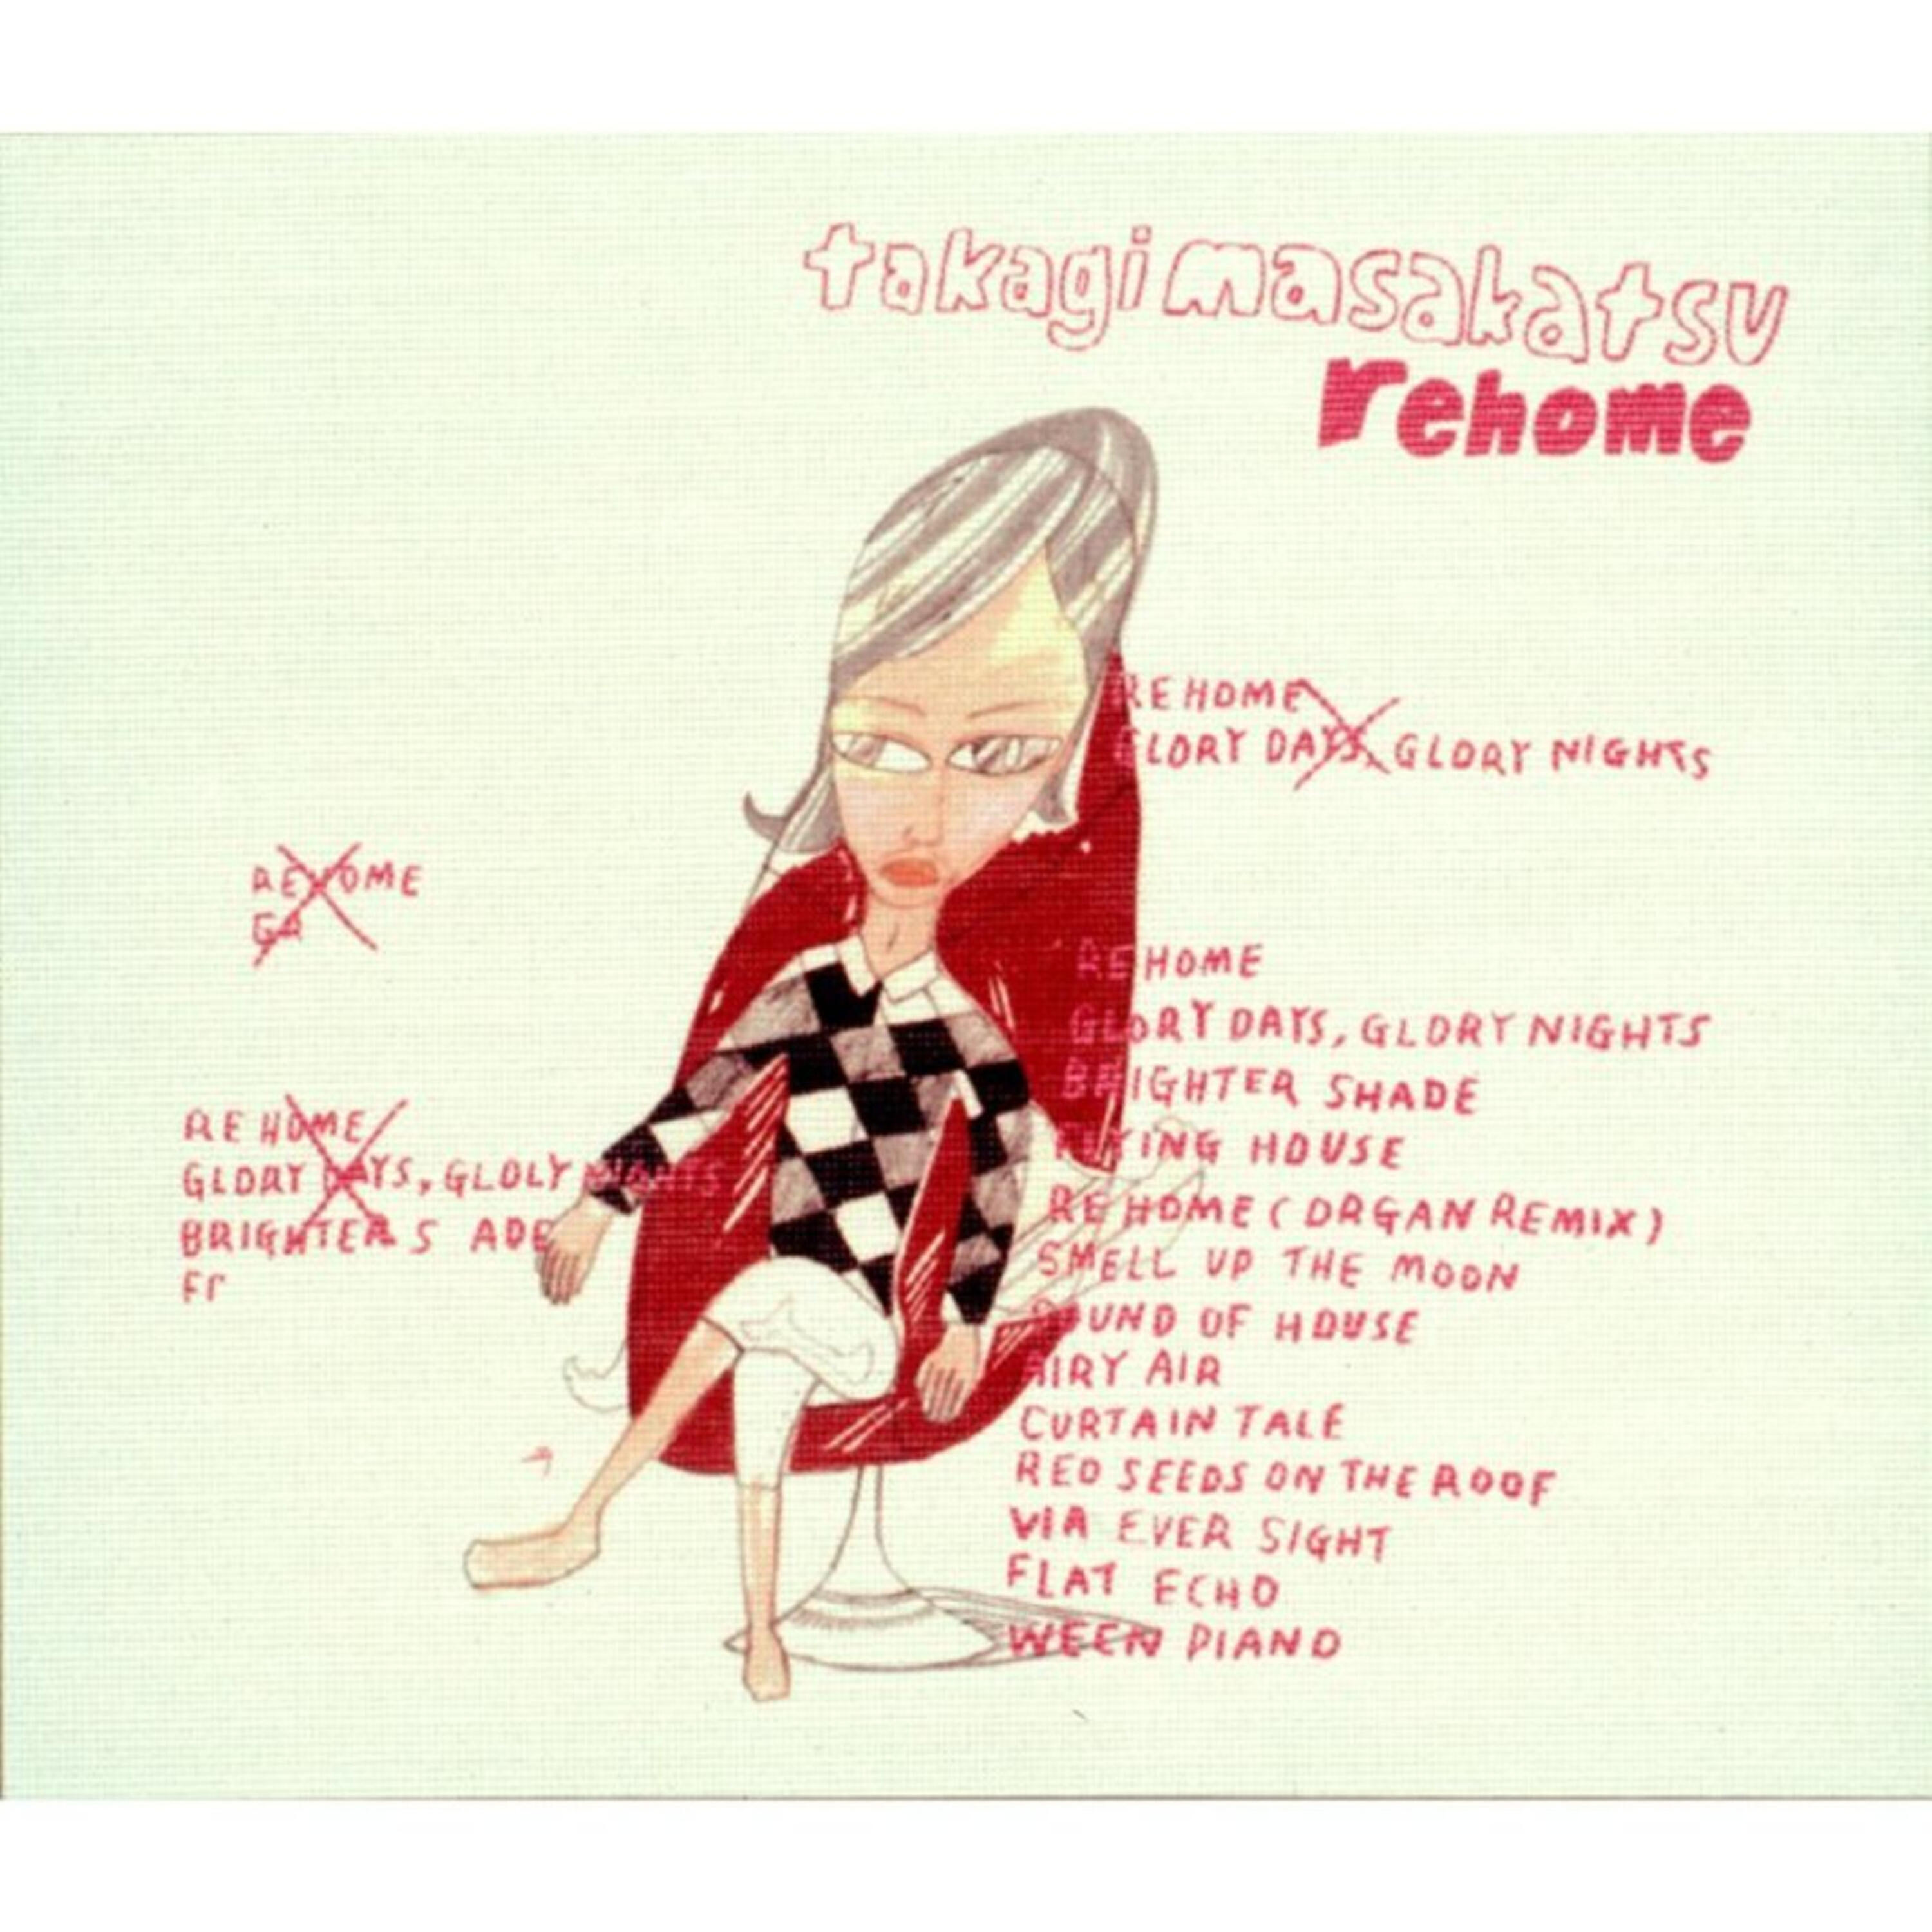 takagi masakatsu
rehome
REHOME
GLORY DAYS, GLORY NIGHTS
REHOME
REHOME
GLORY DAYS, GLORY NIGHTS
BRIGHTER SHADE
FLYING HOUSE
REHOME (ORGAN REMIX)
SMELL UP THE MOON
SOUND OF HOUSE
AIRY AIR
CURTAIN TALE
RED SEEDS ON THE ROOF
VIA EVER SIGHT
FLAT ECHO
WEEN PIANO
REHOME
GLORY DAYS, GLOLY NIGHTS
BRIGHTER S ADE